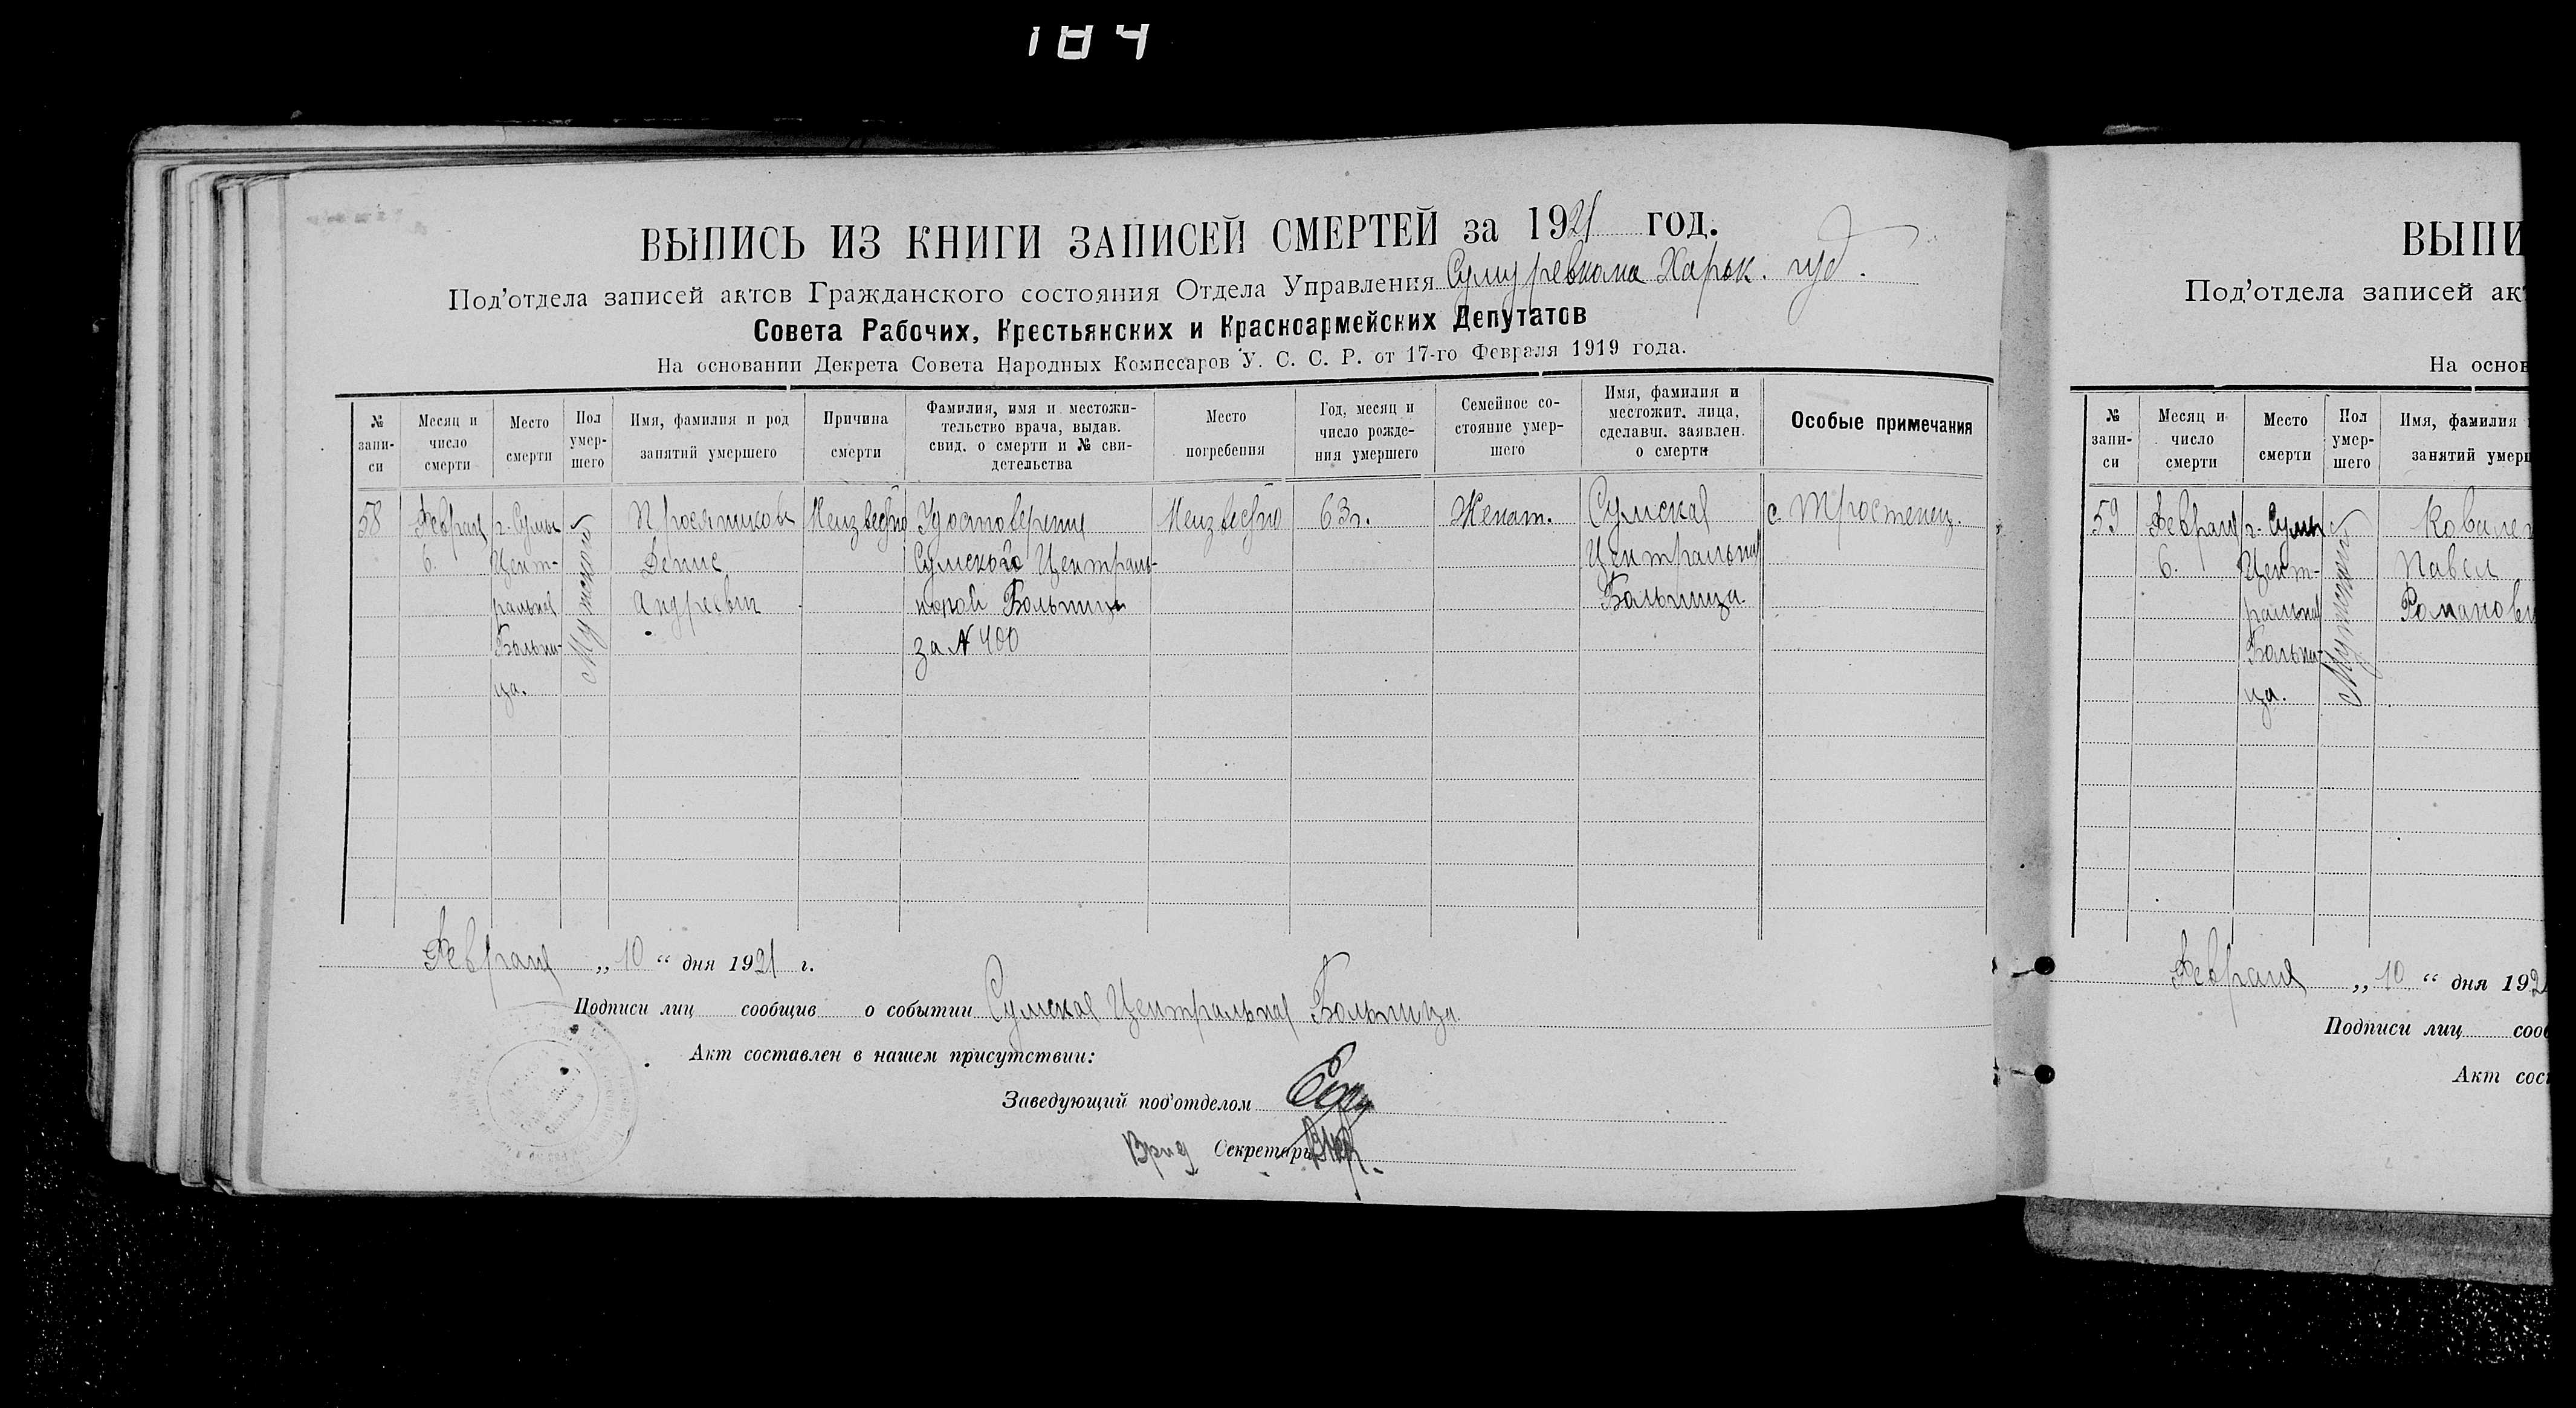 184
ВЫПИСЬ ИЗ КНИГИ ЗАПИСЕЙ СМЕРТЕЙ за 1921 год.
Под'отдела записей актов Гражданского состояния Отдела Управления Сумуревкома Харьк. губ.
Совета Рабочих, Крестьянских и Красноармейских Депутатов
На основании Декрета Совета Народных Комиссаров У. С. С. Р. от 17-го Февраля 1919 года.
№ запи-си
Месяц и число смерти
Место смерти
Пол умер-шего
Имя, фамилия и род занятий умершего
Причина смерти
Фамилия, имя и местожи-тельство врача, выдав. свид. о смерти и № сви-детельства
Место погребения
Год, месяц и число рожде-ния умершего
Семейное со-стояние умер-шего
Имя, фамилия и местожит. лица, сделавш. заявлен. о смерти
Особые примечания
58
Февраля 6.
г. Сумы Цент-ральная Больни-ца.
Мужской
Просяников Денис Андреевич
Неизвестно
Удостоверение Сумского Централь-ной Больницы за № 400
Неизвестно
63 г.
Женат.
Сумская Центральная Больница
с. Тростенец.
Февраля „ 10 “ дня 1921 г.
Подписи лиц сообщив о событии Сумская Центральная Больница
Акт составлен в нашем присутствии:
Заведующий под'отделом
Врид Секретарь
ВЫПИ
Под'отдела записей ак
На основ
№ запи-си
Месяц и число смерти
Место смерти
Пол умер-шего
Имя, фамилия
занятий умерш
59
Февраля 6.
г. Сумы Цент-ральная Больни-ца.
Мужской
Ковален
Павел
Романови
Февраля „ 10 “ дня 192
Подписи лиц сооб
Акт сост